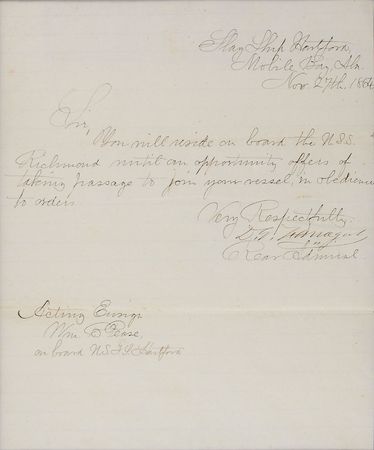 Flag Ship Hartford,
Mobile Bay, Ala
Nov. 27th. 1864
Sir,
You will reside on board the U.S.S.
Richmond until an opportunity offers of
taking passage to join your vessel, in obedience
to orders.
Very Respectfully.
D. G. Farragut
Rear Admiral
Acting Ensign
Wm. Pease,
on board U.S.F.S. Hartford